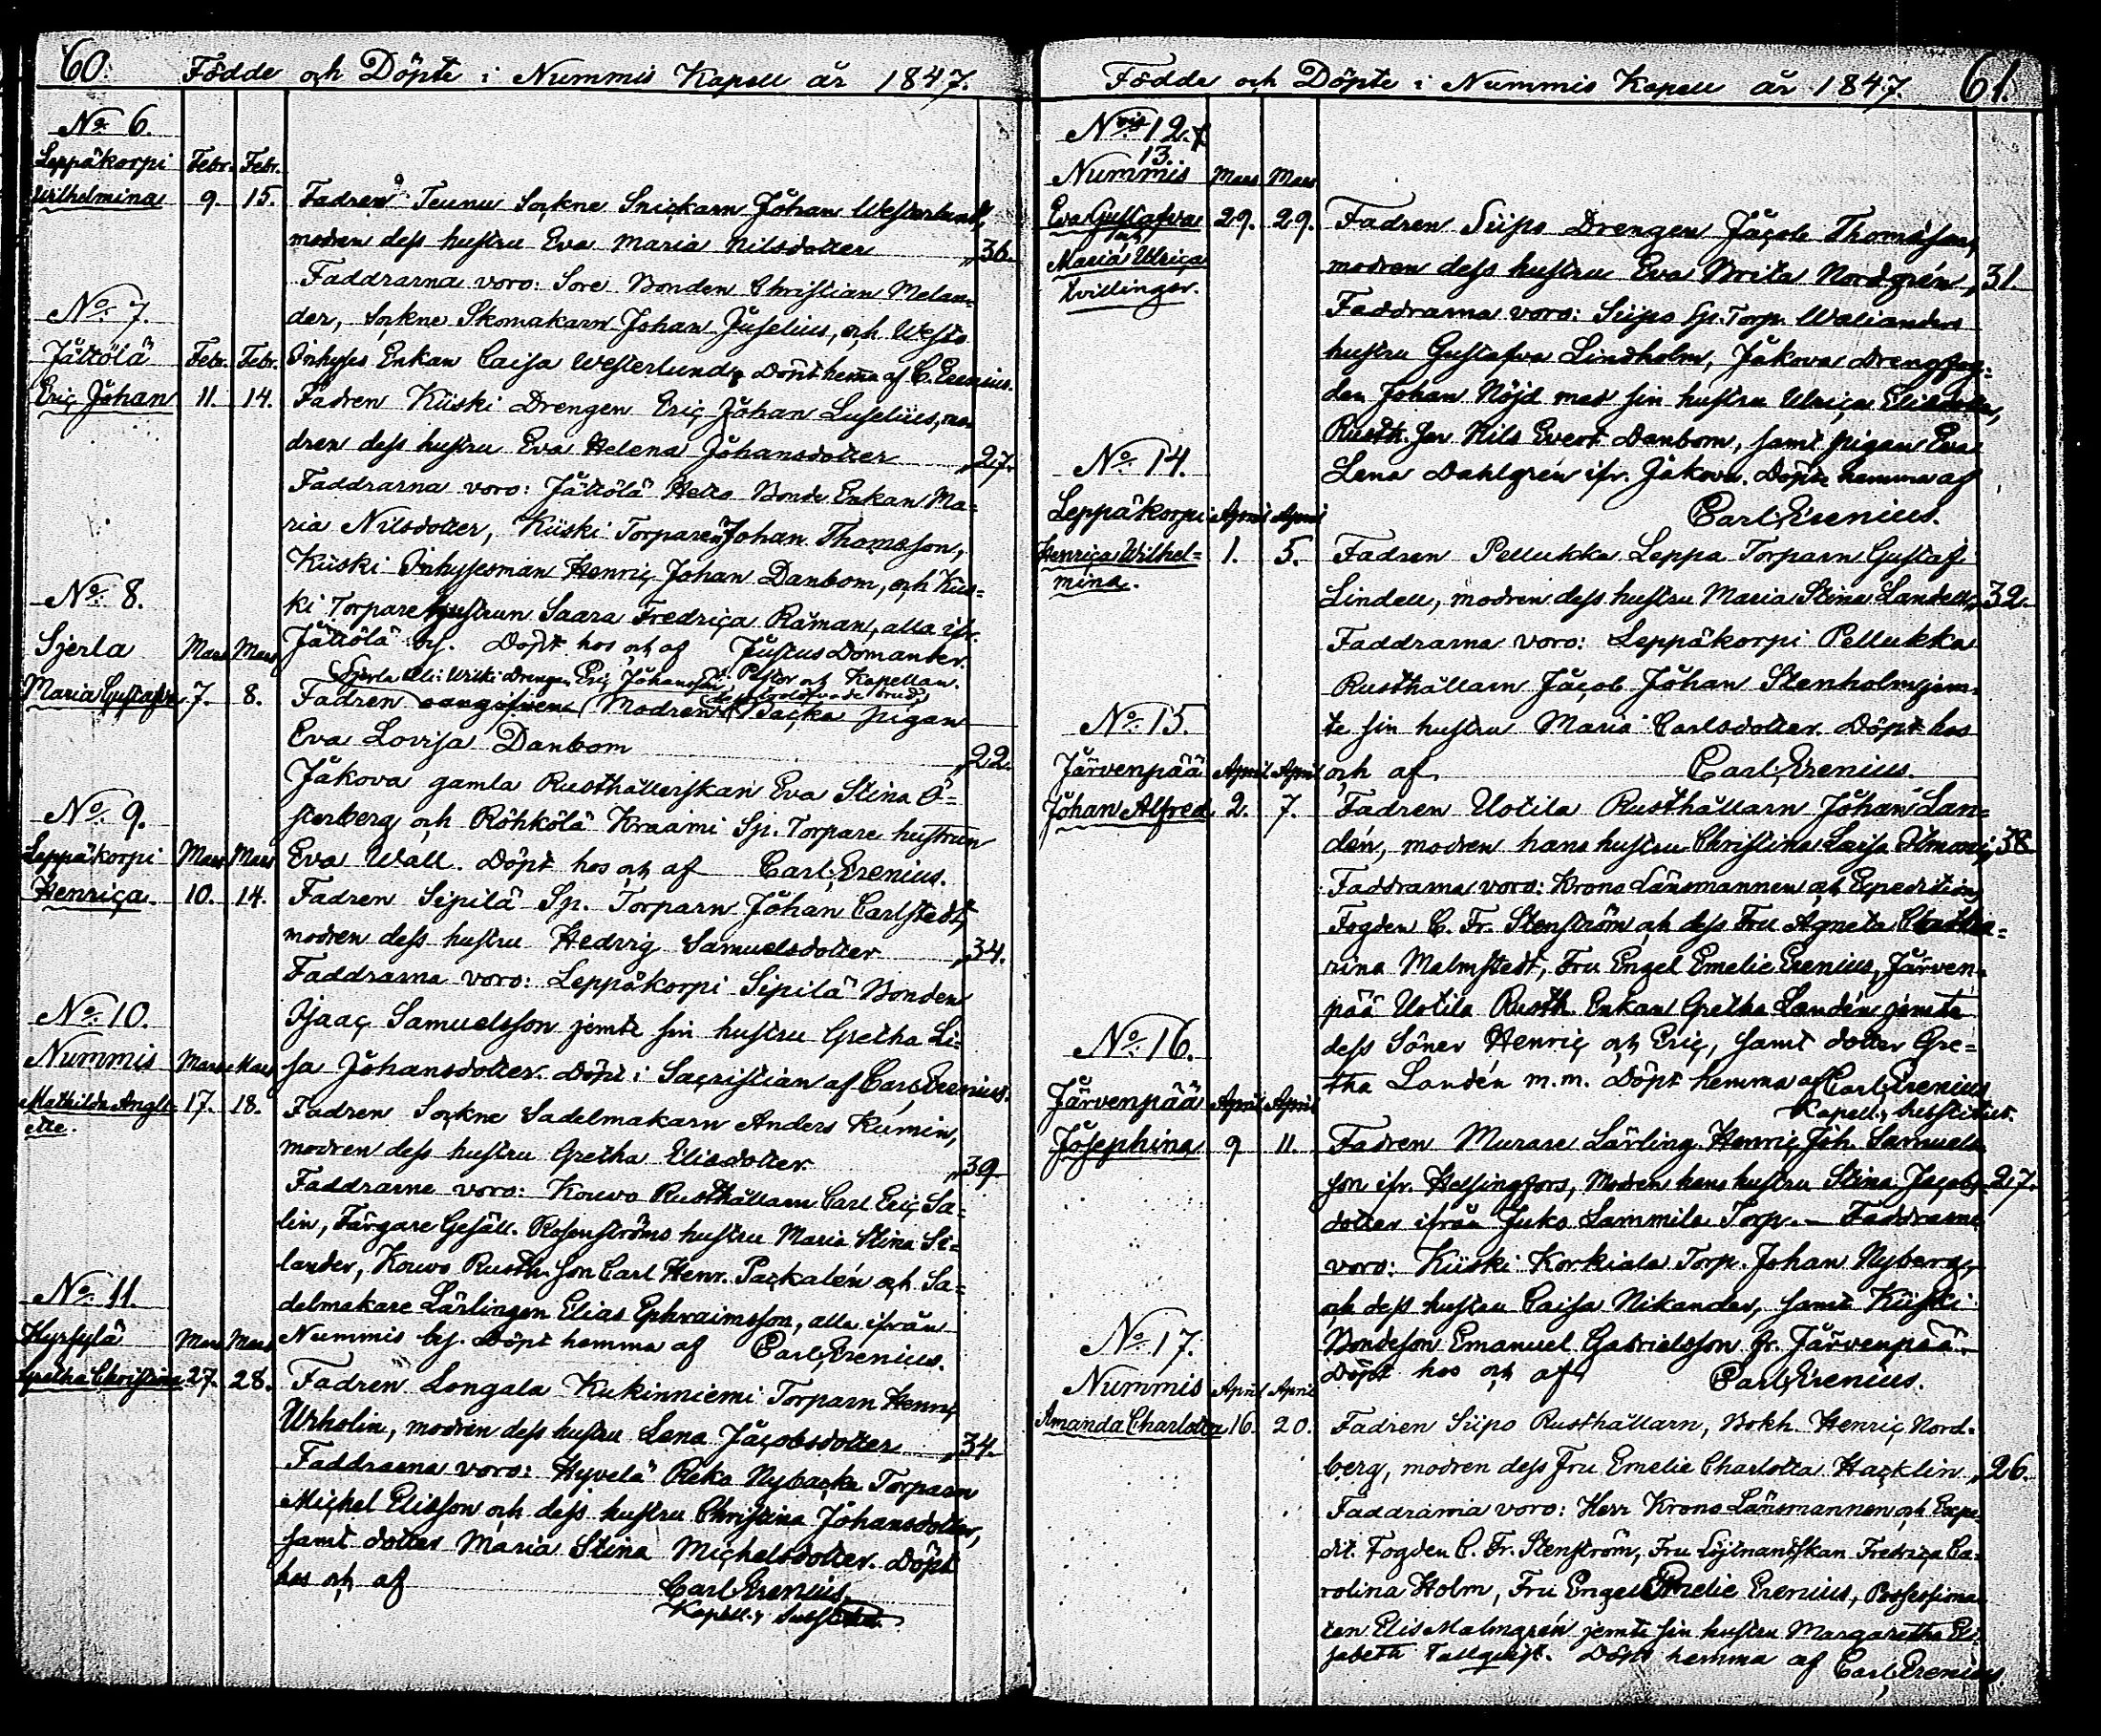 60.
Födde och Döpte i Nummis Kapell år 1847.
No 6.
Leppäkorpi Febr. Febr.
Wilhelmina 9. 15. Fadren Teunu Sockne Snickarn Johan Westerlund,
modren dess hustru Eva Maria Nilsdotter „36.
Faddrarna voro: Sore Bonden Christian Melan=
der, Sockne Skomakarn Johan Juselius, och
Inhyses Enkan Caisa Westerlund, Döpt hemma af C. Erenius.
No 7.
Jättölä Febr. Febr.
Eric Johan 11. 14. Fadren Kiiski Drengen Eric Johan Luselius, mo
dren dess hustru Eva Helena Johansdotter „27.
Faddrarna voro: Jättölä Bonde Enkan Ma=
ria Nilsdotter, Kiiski Torparen Johan Thomsson,
Kiiski Inhysesman Henric Johan Danbom, och Kiis=
ki Torpare hustrun Saara Fredrica Råman, alla ifr.
Jättölä by. Döpt hos och af Justus Domander.
Pastor och Kapellan.
No 8.
Sjerla Mars Mars
Maria Gustafva 7. 8. Fadren oangifven Modren Backa pigan
Eva Lovisa Danbom „22.
Jakova gamla Rusthållerskan Eva Stina Ö=
sterberg och Röhkölä Kraami Sp. Torpare hustrun
Eva Wall. Döpt hos och af Carl Erenius.
No 9.
Leppäkorpi Mars Mars
Henrica. 10. 14. Fadren Sipilä Sp. Torparn Johan Carlstedt,
modren dess hustru Hedvig Samuelsdotter „34.
Faddrarna voro: Leppäkorpi Sipilä Bonden
Isaac Samuelsson jemte sin hustru Gretha Li=
sa Johansdotter. Döpt i Sacristian af Carl Erenius.
No 10.
Nummis Mars Mars
Mathilda 17. 18. Fadren Sockne Sadelmakarn Anders Kumin,
ette.
modren dess hustru Gretha Eliasdotter „39
Faddrarne voro: Kouvo Rusthållarn Carl Eric Sa=
lin, Färgare Gesäll. Rosenströms hustru Maria Stina Se=
lander, Kouvo Rusth. son Carl Henr. Packalén och Sa=
delmakare Lärlingen Elias Ephraimsson, alla ifrån
Nummis by. Döpt hemma af Carl Erenius.
No 11.
Hyrsylä Mars Mars
Gretha Christina 27. 28. Fadren Longala Kukinniemi Torparn Henric
Urholin, modren dess hustru Lena Jacobsdotter „34.
Faddrarna voro: Hyvelä Reko Nybacka Torparn
Michel Elisson och dess hustru Christina Johansdotter,
samt dotter Maria Stina Michelsdotter. Döpt
hos och af Carl Erenius.
Kapell.s Substitut.
61.
Födde och Döpte i Nummis Kapell år 1847.
Nris 12. &
13.
Nummis Mars Mars
Eva Gustafva 29. 29. Fadren Siipo Drengen Jacob Thomasson,
och
Maria Ulrica modren dess hustru Eva Brita Nordgrén „31
tvillingar.
Faddrarna voro: Siipo Sp. Torp. Walianders
hustru Gustafva Lindholm, Jakova Drengfog=
den Johan Nöjd med sin hustru Ulrica Eliasdotter,
Rusth. son Nils Evert Danbom, samt pigan Eva
Lena Dahlgrén ifr. Jakova. Döpte hemma af
Carl Erenius.
No 14.
Leppäkorpi April April
Henrica Wilhel= 1. 5. Fadren Pellukka Leppa Torparn Gustaf
mina.
Lindell, modren dess hustru Maria Stina Landell „32.
Faddrarne voro: Leppäkorpi Pellukka
Rusthållarn Jacob Johan Stenholm jem=
te sin hustru Maria Carlsdotter. Döpt hos
och af Carl Erenius.
No 15.
Järvenpää April April
Johan Alfred 2. 7. Fadren Uotila Rusthållarn Johan Lan=
dén, modren hans hustru Christina Caisa Ilmoni „38
Faddrarna voro: Krono Länsmannen och Expeditions
Fogden C. Fr. Stenström och dess Fru Agneta Catha=
rina Malmstedt, Fru Engel Emelie Erenius, Järven=
pää Uotila Rusth. Enkan Gretha Landén jemte
dess Söner Henric och Eric, samt dotter Gre=
tha Landén m.m. Döpt hemma af Carl Erenius
Kapell.s Substitut.
No 16.
Järvenpää April April
Josephina 9 11. Fadren Murare Lärling Henric Joh. Samuels
son ifr. Helsingfors, Modren hans hustru Stina Jacobs „27.
dotter ifrån Juko Lammila Torp. – Faddrarne
voro: Kiiski Korkiala Torp. Johan Nyberg,
och dess hustru Caisa Nikander, samt Kiiski
Bondeson Emanuel Gabrielsson fr. Järvenpää.
Döpt hos och af Carl Erenius.
No 17.
Nummis April April
Amanda Charlotta 16. 20. Fadren Siipo Rusthållarn, Bokh. Henric Nord=
berg, modren dess Fru Emelie Charlotta Hacklin „26.
Faddrarna voro: Herr Krono Länsmannen och Expe=
dit. Fogden C. Fr. Stenström, Fru Löjtnantskan Fredrica Ca=
rolina Holm, Fru Engel Emelie Erenius, Possessiona=
ten Elis Malmgrén jemte sin hustru Margaretha Eli=
sabeth Tallqvist. Döpt hemma af Carl Erenius.